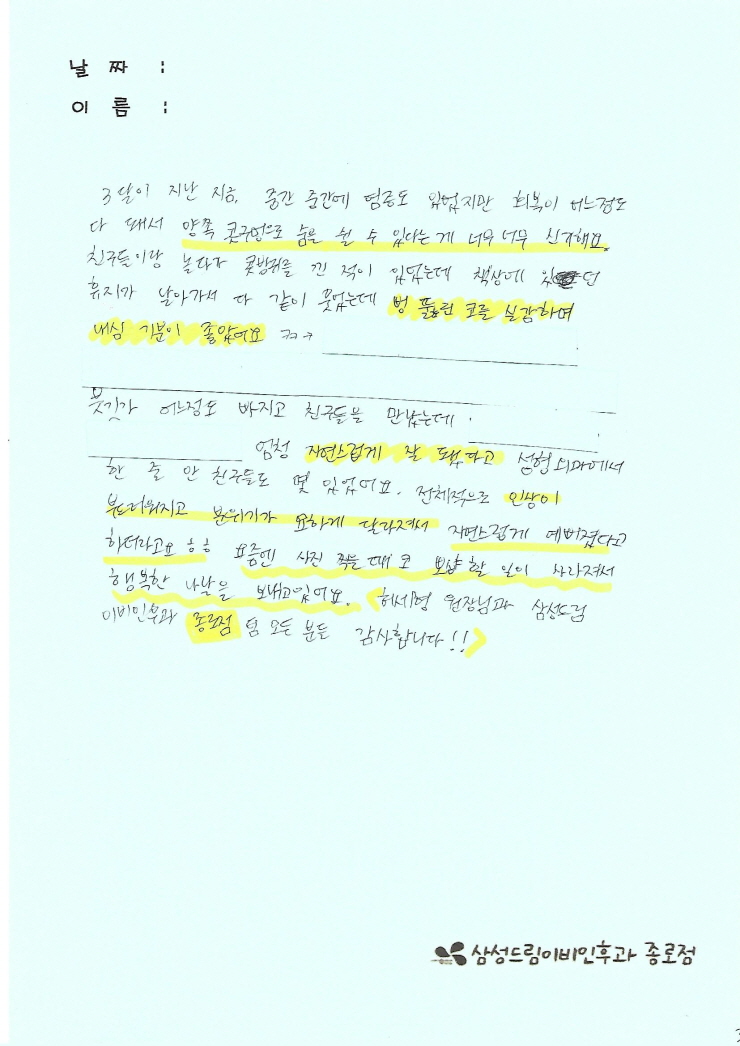 날 짜 :
이 름 :
3달이 지난 지금, 중간 중간에 염증도 있었지만 회복이 어느정도
다 돼서 양쪽 콧구멍으로 숨을 쉴 수 있다는 게 너무 너무 신기해요.
친구들이랑 놀다가 콧방귀를 낀 적이 있었는데 책상에 있던
휴지가 날아가서 다 같이 웃었는데 뻥 뚫린 코를 실감하며
내심 기분이 좋았어요 ㅋㅋ
붓기가 어느정도 빠지고 친구들을 만났는데
엄청 자연스럽게 잘 됐다고 성형외과에서
한 줄 안 친구들도 몇 있었어요. 전체적으로 인상이
부드러워지고 분위기가 묘하게 달라져서 자연스럽게 예뻐졌다고
하더라고요 ㅎㅎ 요즘엔 사진 찍을 때 코 보샵 할 일이 사라져서
행복한 나날을 보내고있어요. 허세형 원장님과 삼성드림
이비인후과 종로점 팀 모든 분들 감사합니다!!
삼성드림이비인후과 종로점